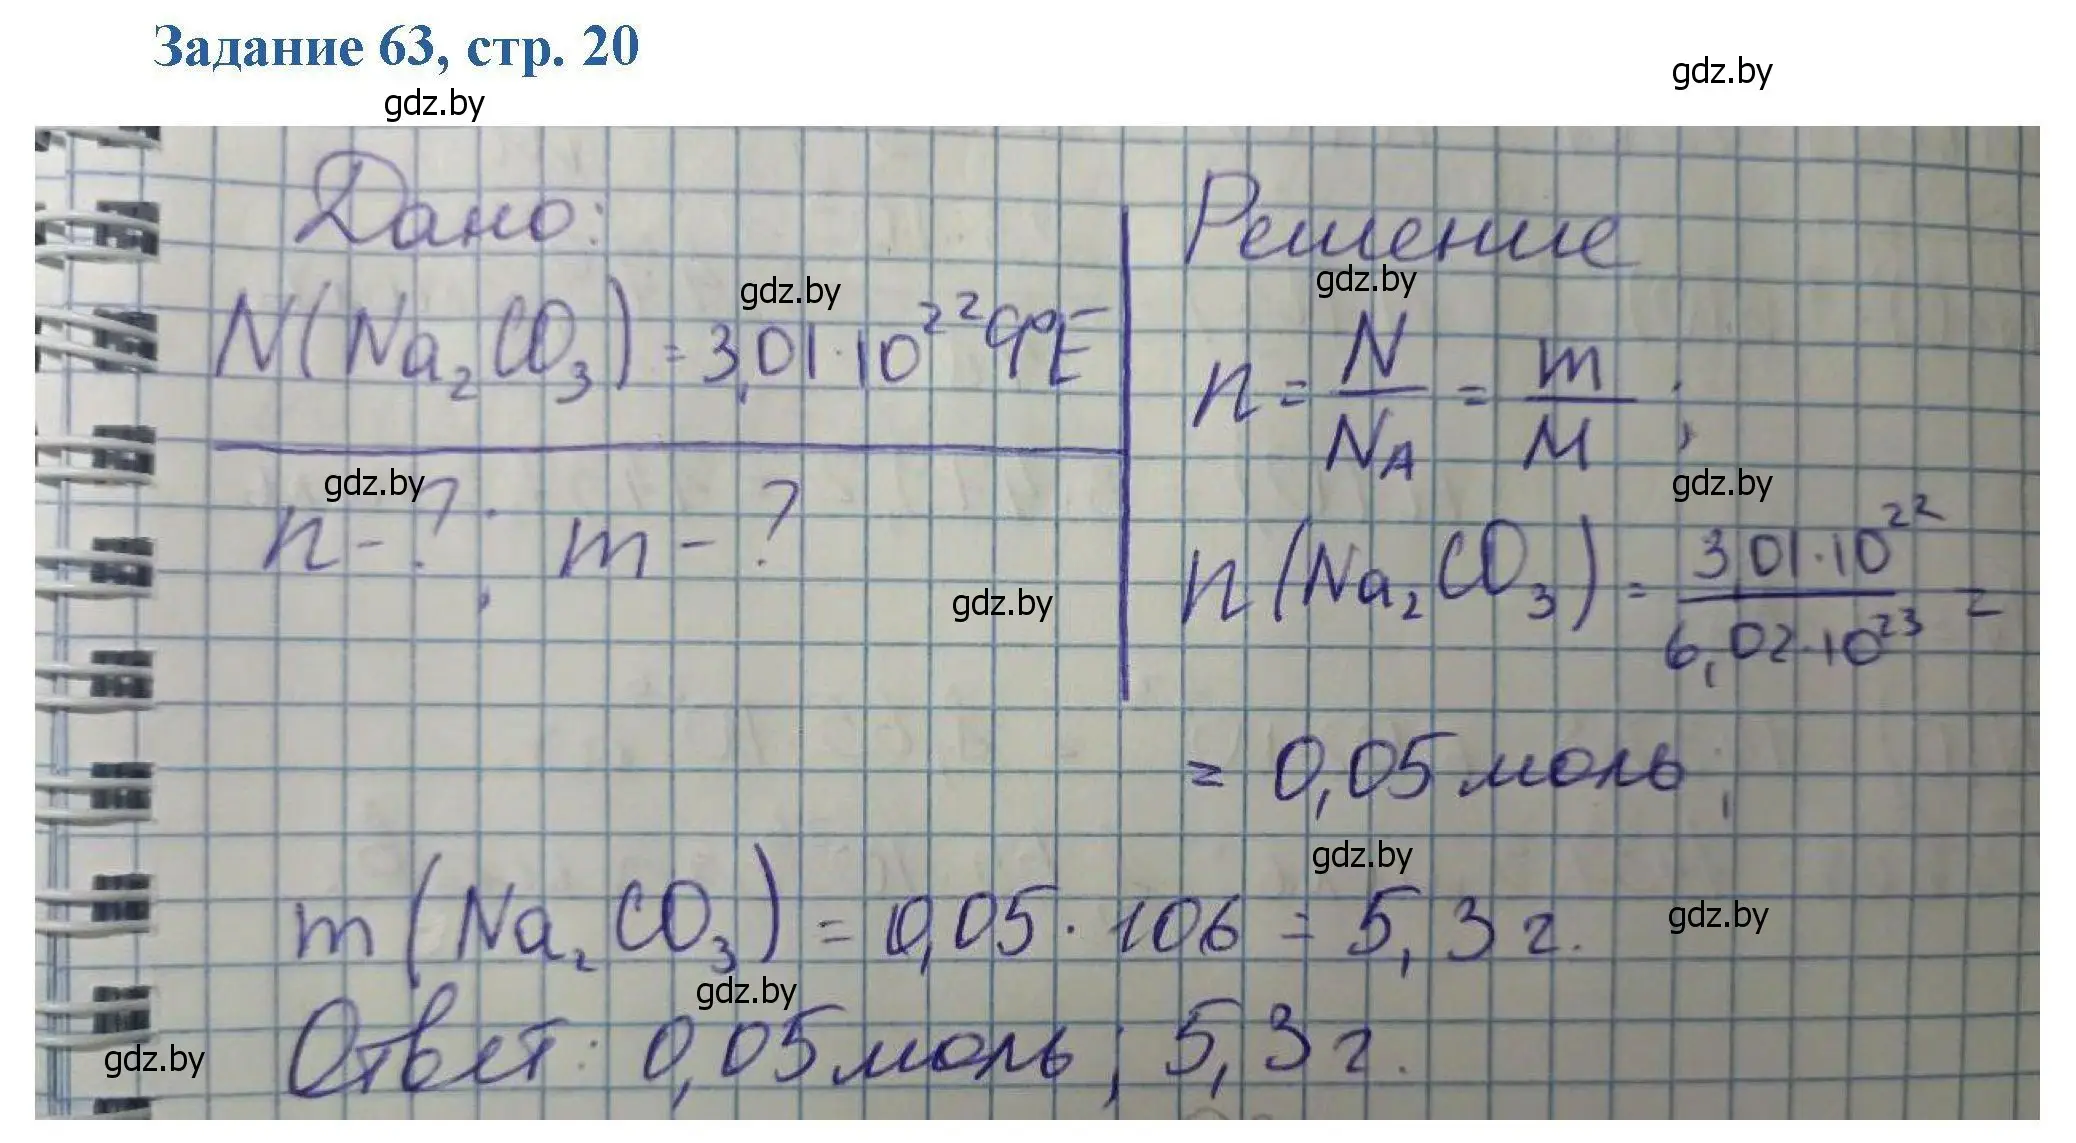 Задание 63, стр. 20
gdz.by
gdz.by
Дано:
N(Na₂CO₃) = 3,01·10²² ФЕ
gdz.by
n-?; m-?
gdz.by
gdz.by
Решение
gdz.by
n = N/N_A = m/M;
gdz.by
n(Na₂CO₃) = 3,01·10²²/6,02·10²³ =
= 0,05 моль;
gdz.by
m(Na₂CO₃) = 0,05·106 = 5,3 г.
gdz.by
gdz.by
Ответ: 0,05 моль; 5,3 г.
gdz.by